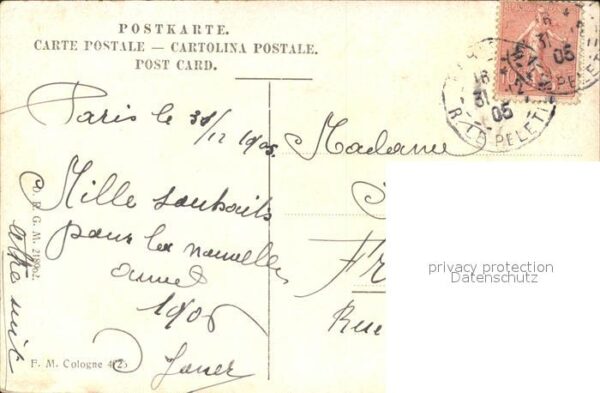 POSTKARTE.
CARTE POSTALE — CARTOLINA POSTALE.
POST CARD.
Paris le 31/12 1905.
Mille souhaits
pour la nouvelle
année
1906
Madame
Fr
Rue
16
31
12
05
R. LE PELETI
05
PELETIE
D. R. G. M. 218962.
F. M. Cologne 4/25
privacy protection
Datenschutz